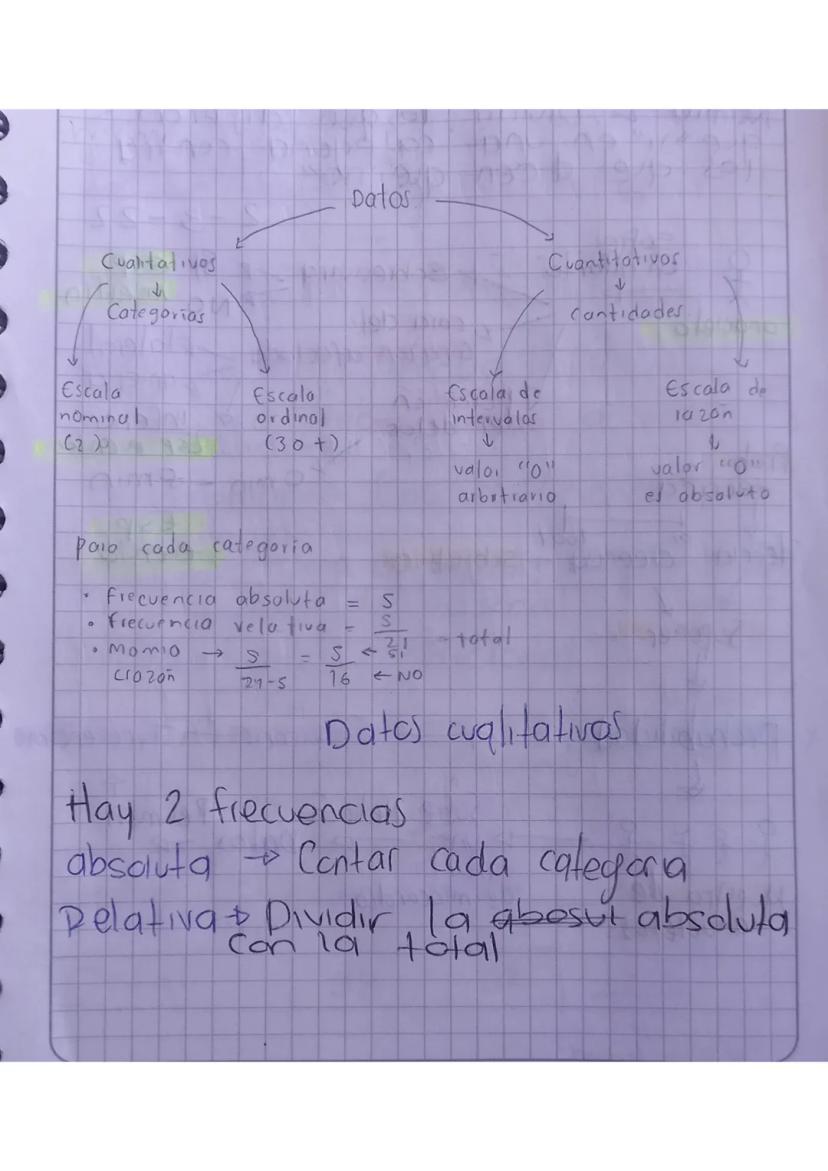 Datos
Cualitativos Cuantitativos
↓ ↓
Categorias cantidades
Escala Escala Escala de Escala de
nominal ordinal intervalos razón
(2) (3 o +) ↓ ↓
valor "0" valor "0"
arbitrario es absoluto
para cada categoria
• frecuencia absoluta = 5
• frecuencia relativa = 5/21 - total
• Momio → 5/21-5 = 5/16 ← si ← NO
(razón
Datos cualitativos
Hay 2 frecuencias
absoluta → Contar cada categoria
Relativa → Dividir la abosut absoluta
con la total